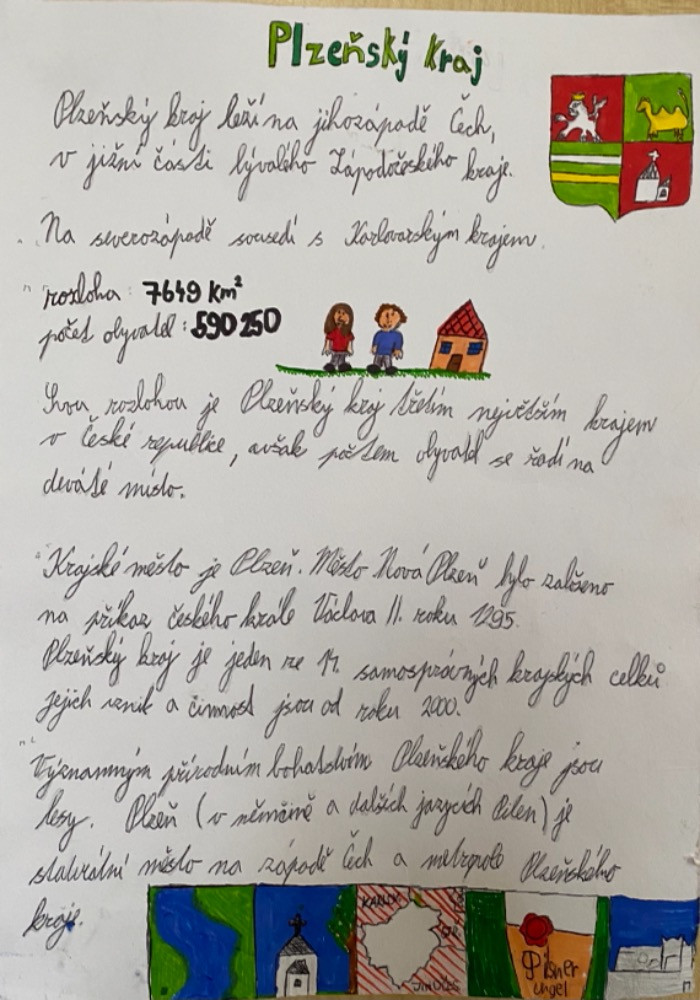 Plzeňský kraj
Plzeňský kraj leží na jihozápadě Čech,
v jižní části bývalého Západočeského kraje.
Na severozápadě sousedí s Karlovarským krajem.
rozloha: 7649 km²
počet obyvatel: 590250
Svou rozlohou je Plzeňský kraj třetím největším krajem
v České republice, avšak počtem obyvatel se řadí na
deváté místo.
Krajské město je Plzeň. Město Nová Plzeň bylo založeno
na příkaz českého krále Václava II. roku 1295.
Plzeňský kraj je jeden ze 14. samosprávných krajských celků
jejich vznik a činnost jsou od roku 2000.
Významným přírodním bohatstvím Plzeňského kraje jsou
lesy. Plzeň (v němčině a dalších jazycích Pilsen) je
statutární město na západě Čech a metropole Plzeňského
kraje.
Pilsner
urqel